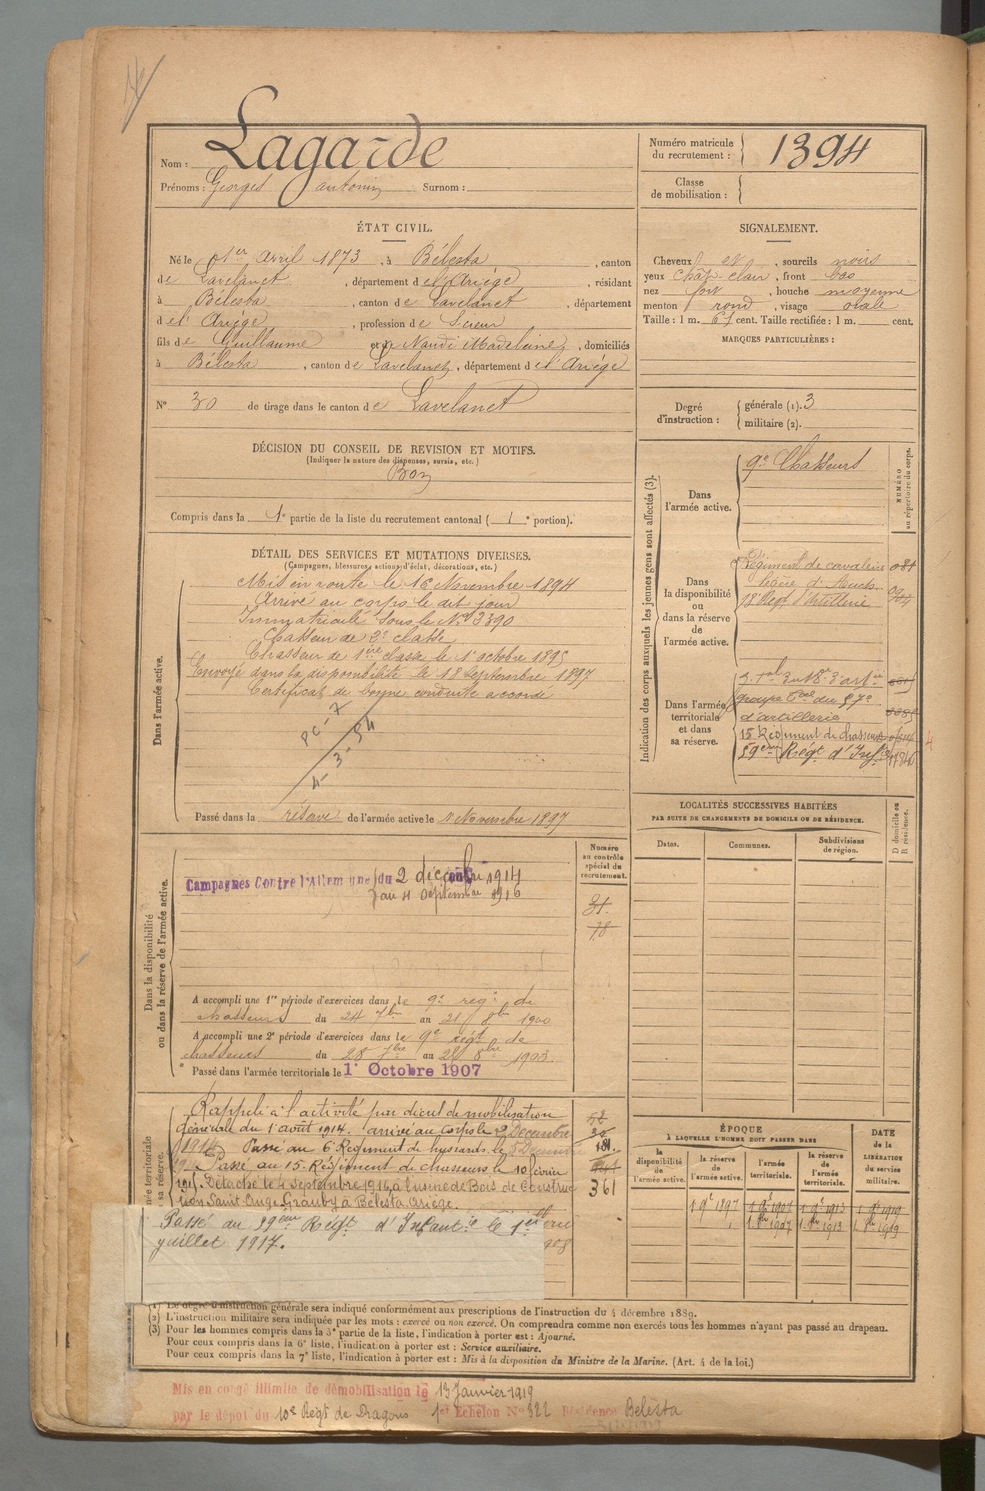 Nom : Lagarde
Prénoms : Georges antonin Surnom :
Numéro matricule du recrutement : 1394
Classe de mobilisation :
ÉTAT CIVIL.
Né le 1er avril 1873, à Bélesta, canton
de Lavelanet, département de l'Ariège, résidant
à Bélesta, canton de Lavelanet, département
de l'Ariège, profession de
fils de Guillaume et de Naudi Madeleine, domiciliés
à Bélesta, canton de Lavelanet, département de l'Ariège
N° 30 de tirage dans le canton de Lavelanet
SIGNALEMENT.
Cheveux et, sourcils noirs
yeux chât-clair, front bas
nez fort, bouche moyenne
menton rond, visage ovale
Taille : 1 m. 67 cent. Taille rectifiée : 1 m. cent.
MARQUES PARTICULIÈRES :
Degré d'instruction : générale (1). 3
militaire (2).
DÉCISION DU CONSEIL DE REVISION ET MOTIFS.
(Indiquer la nature des dispenses, sursis, etc.)
Bon
Compris dans la 1e partie de la liste du recrutement cantonal ( 1e portion).
DÉTAIL DES SERVICES ET MUTATIONS DIVERSES.
(Campagnes, blessures, actions d'éclat, décorations, etc.)
Dans l'armée active.
Mis en route le 16 Novembre 1894
Arrivé au corps le dit jour
Immatriculé sous le N° 3390
Chasseur de 2e classe
Chasseur de 1ère classe le 1 octobre 1895
Envoyé dans la disponibilité le 18 Septembre 1897
Certificat de bonne conduite accordé
Passé dans la réserve de l'armée active le 1 Novembre 1897
Indication des corps auxquels les jeunes gens sont affectés (3).
NUMÉRO au répertoire du corps.
Dans l'armée active.
9e Chasseurs
Dans la disponibilité ou dans la réserve de l'armée active.
Régiment de cavalerie
légère d'Auch
18 Régt d'Artillerie
Dans l'armée territoriale et dans sa réserve.
groupe du 57e
d'artillerie
15 Régiment de chasseurs
59eme Régt d'Infie
LOCALITÉS SUCCESSIVES HABITÉES
PAR SUITE DE CHANGEMENTS DE DOMICILE OU DE RÉSIDENCE.
Dates. Communes. Subdivisions de région. D domicile ou R résidence.
Dans la disponibilité ou dans la réserve de l'armée active.
Numéro au contrôle spécial du recrutement.
Campagnes Contre l'Allemagne du 2 décembre 1914
au 4 septembre 1916
31.
78
A accompli une 1re période d'exercices dans le 9e regt de
chasseurs du 24 7bre au 21 8bre 1900
A accompli une 2e période d'exercices dans le 9e régt de
chasseurs du 28 7bre au 8bre 1903
Passé dans l'armée territoriale le 1er Octobre 1907
Rappelé à l'activité par décret de mobilisation
Générale du 1 août 1914. arrivé au corps le 2 Décembre
1914 Passé au 6e Régiment de hussards le
Passé au 15e Régiment de chasseurs le 10 février
Détaché le 4 Septembre 1916 à l'usine de Bois de Construc
tion Saint-Ange Grauby à Bélesta Ariège.
361
Passé au 59eme Régt d'Infantie le 1er
juillet 1917.
ÉPOQUE
À LAQUELLE L'HOMME DOIT PASSER DANS
la disponibilité de l'armée active. la réserve de l'armée active. l'armée territoriale. la réserve de l'armée territoriale.
DATE de la LIBÉRATION du service militaire.
(1) Le degré d'instruction générale sera indiqué conformément aux prescriptions de l'instruction du 4 décembre 1889.
(2) L'instruction militaire sera indiquée par les mots : exercé ou non exercé. On comprendra comme non exercés tous les hommes n'ayant pas passé au drapeau.
(3) Pour les hommes compris dans la 5e partie de la liste, l'indication à porter est : Ajourné.
Pour ceux compris dans la 6e liste, l'indication à porter est : Service auxiliaire.
Pour ceux compris dans la 7e liste, l'indication à porter est : Mis à la disposition du Ministre de la Marine. (Art. 4 de la loi.)
Mis en congé illimité de démobilisation le 13 Janvier 1919
par le dépôt du 10e Régt de Dragons 1er Echelon N° 322 Résidence Belesta